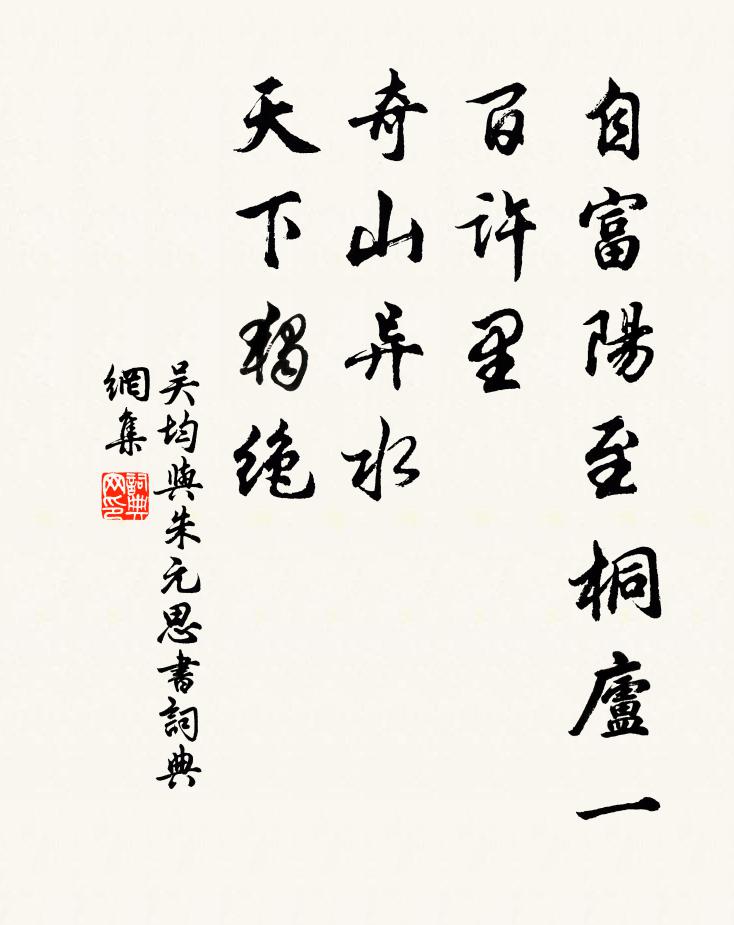 自富陽至桐廬一
百許里
奇山异水
天下獨绝
吴均與朱元思書詞典
網集
詞典
网印